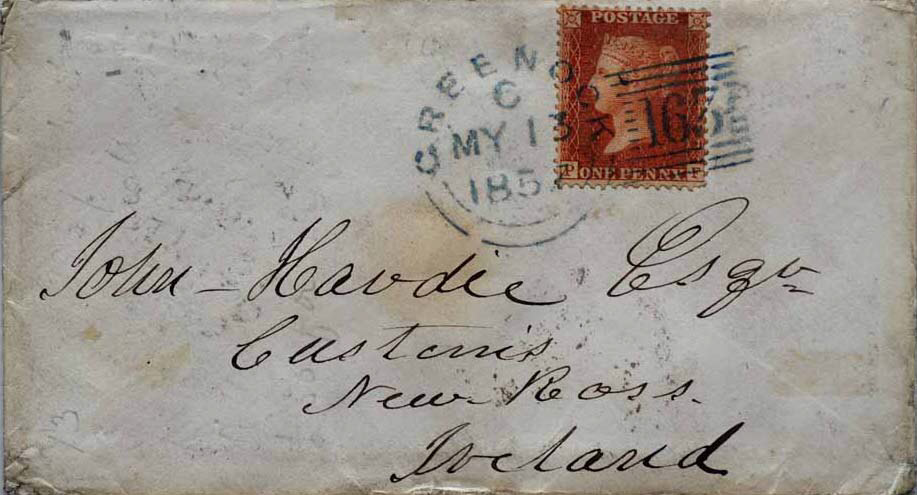 POSTAGE
P ONE PENNY F
GREENOCK
C
MY 13
185
163
John Hardie Esqr
Customs
New Ross.
Ireland